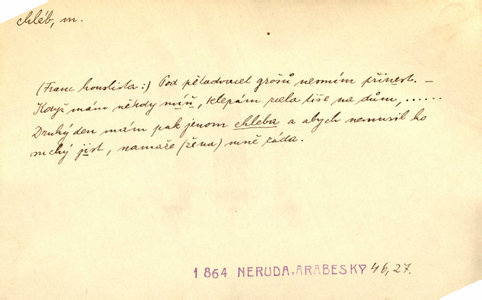 chléb, m.
(Franc houslista:) Pod pětadvacet grošů nesmím přinest. –
Když mám někdy míň, klepám zcela tiše na dům, ......
Druhý den mám pak jenom chleba a abych nemusil ho
suchý jíst, namaže (žena) mně sáda.
1864 NERUDA, ARABESKY 46, 27.